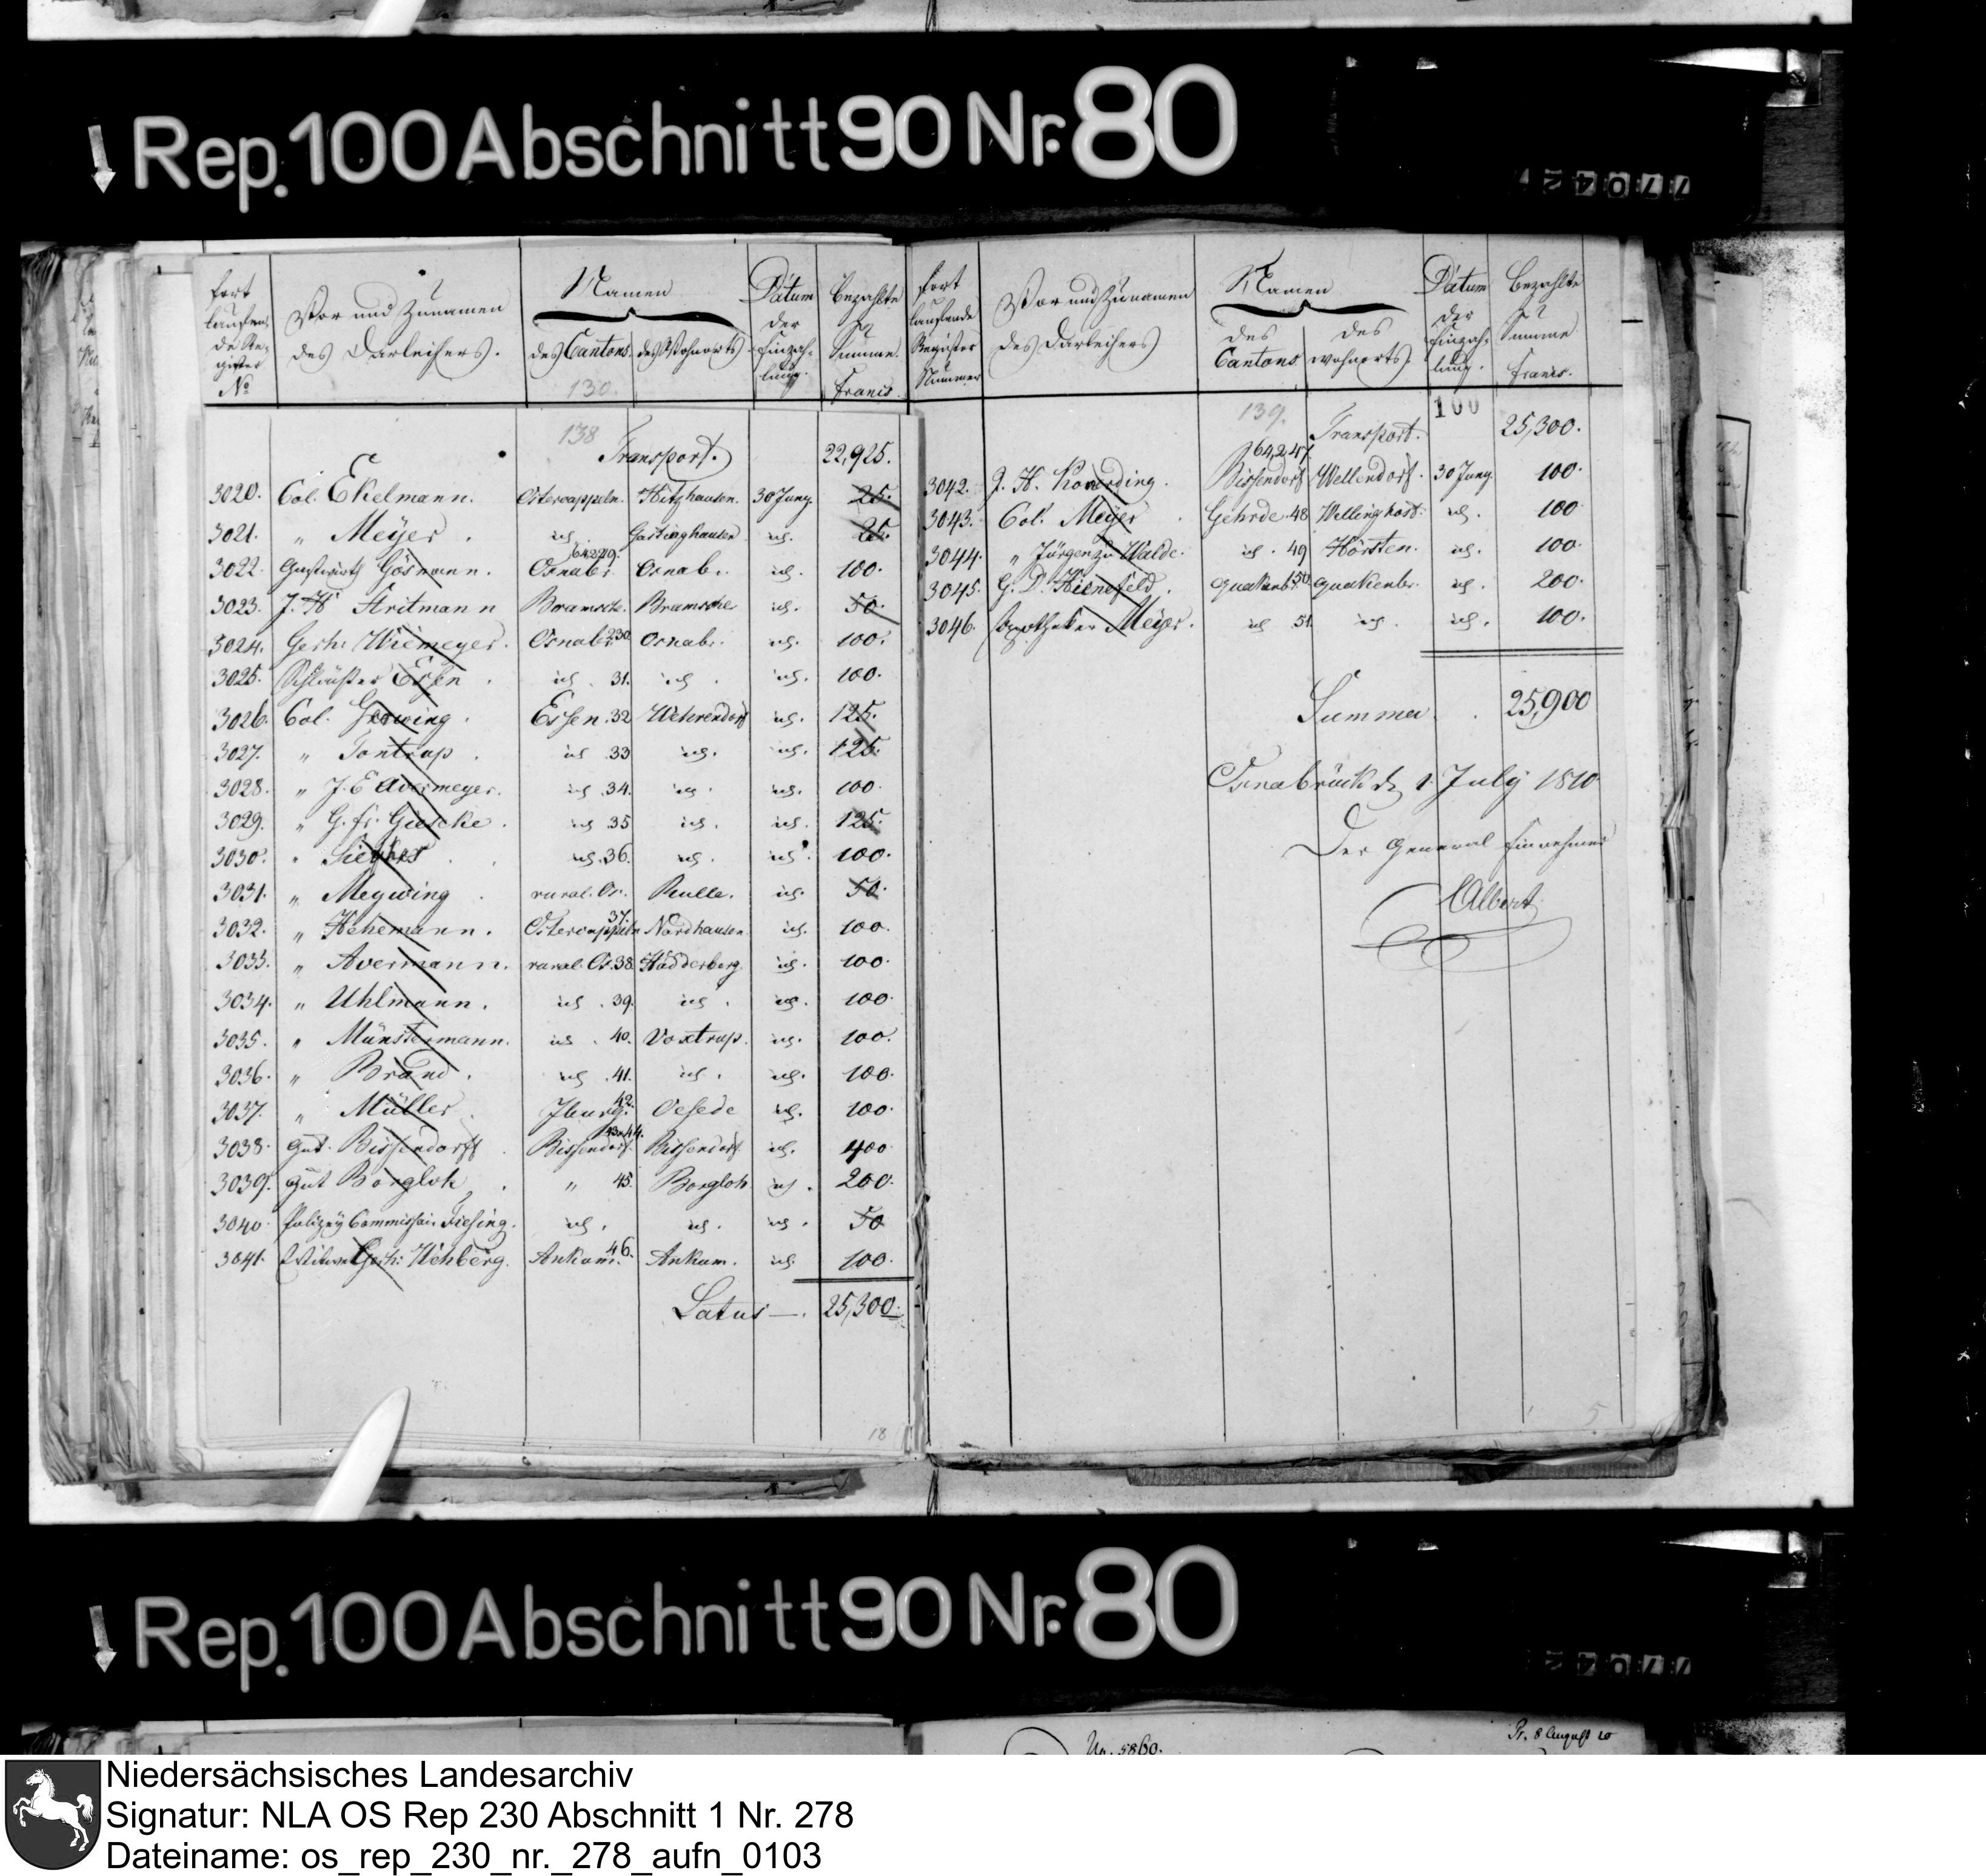 Rep. 100 Abschnitt 90 Nr. 80
fort laufen, de Re, gister No
Vor und Zunamen des Darleihers.
Namen
des Cantons. des Wohnorts
Datum der Einzah, lung.
Bezahlte Summe. Francs.
130.
138
Transport. 22,925.
3020. Col. Ekelmann. Ostercappeln. Hitzhausen. 30 Juny. 25.
3021. " Meyer. id. id. 25.
64229.
3022. Gastwirth Gösmann. Osnabr. Osnab. id. 100.
3023. J. H. Stritmann Bramsche. Bramsche id. 50.
3024. Gerh: Wiemeyer. Osnabr. 230 Osnab. id. 100.
3025. Essen. id. 31. id. id. 100.
3026. Col. Essen. 32 Wehrendorf id. 125.
3027. " Tontrup. id. 33 id. id. 125.
3028. " J. E. Avermeyer. id. 34. id. id. 100.
3029. " G. Fr. Gieseke. id. 35 id. id. 125.
3030. " id. 36. id. id. 100.
3031. " Meywing. rural. Os. Rulle. id. 50.
3032. " Hehemann. Ostercappeln 37. Nordhausen. id. 100.
3033. " Avermann. rural. Os. 38. Hadderberg. id. 100.
3034. " Uhlmann. id. 39. id. id. 100.
3035. " Münstermann. id. 40. Voxtrup. id. 100.
3036. " Brand. id. 41. id. id. 100.
3037. " Müller. Iburg. 42. Oesede id. 100.
3038. Gut. Bissendorff Bissendorf. 43.44. Bissendorf. id. 400.
3039. Gut Borgloh. " 45. Borgloh id. 200.
3040. Polizey Commissair Fiesing. id. id. id. 50
3041. Witwe Gerh: Wehberg. Ankum. 46. Ankum. id. 100.
Latus —. 25,300.
18
fort laufende Register Nummer
Vor und Zunamen des Darleihers
Namen
des Cantons des wohnorts.
Datum der Einzah, lung.
Bezahlte Summe Francs.
139. 100
Transport. 25,300.
64,247
3042. J. H. Bissendorf Wellendorf. 30 Juny. 100.
3043. Col. Meyer. Gehrde. 48 id. 100
3044. " Jürgen zu Walde. id. 49 Hörsten. id. 100.
3045. G. D. Hienefeld. Quakenb. 50 Quakenbr. id. 200.
3046. Apotheker Meyer. id 51. id. id. 100.
Summa. 25,900
Osnabrück d. 1. July 1810
Der General Einnehmer
Albert
5
Rep. 100 Abschnitt 90 Nr. 80
Pr. 8 August 10
Nr. 5860.
Niedersächsisches Landesarchiv
Signatur: NLA OS Rep 230 Abschnitt 1 Nr. 278
Dateiname: os_rep_230_nr._278_aufn_0103